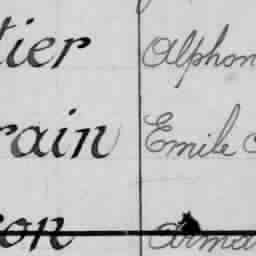 tier Alphon
rain Emile
son Arma